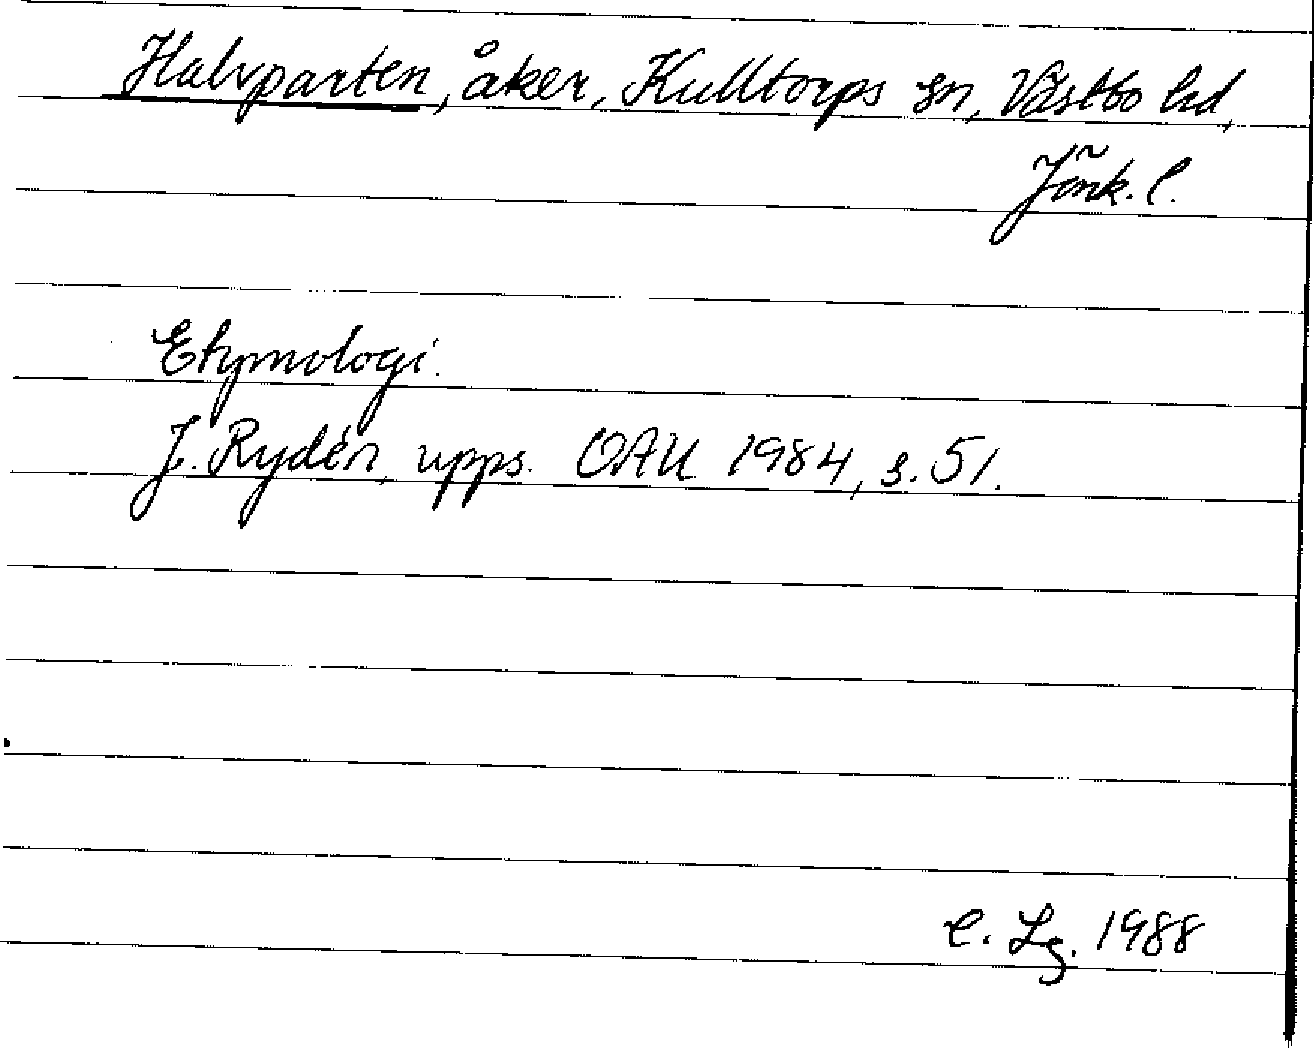 Halvparten, åker, Kulltorps sn, Västbo hd,
Jönk. l.
Etymologi.
J. Rydén, upps. OAU 1984, s. 51.
C. Lg. 1988